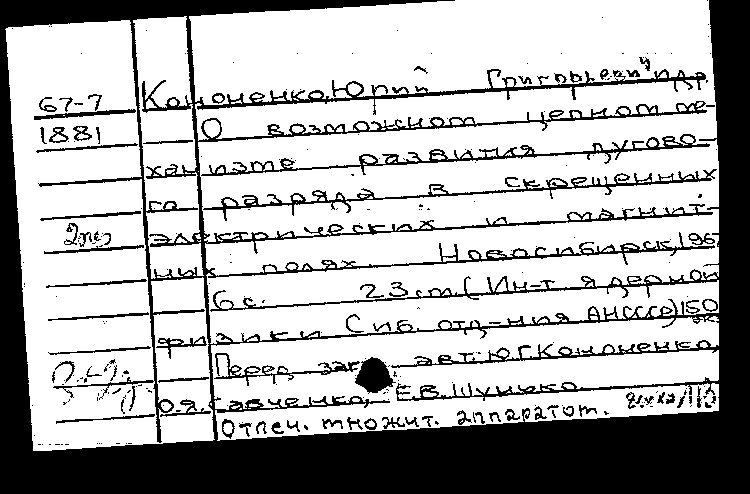 67-7 Кононенко, Юрий Григорьевич и др.
1881 О возможном цепном ме-
ханизме развития дугово-
го разряда в скрещенных
2 экз электрических и магнит-
ных полях. Новосибирск, 1967
6 с. 23 см (Ин-т ядерной
физики Сиб. отд-ния АН СССР) 150 экз.
Перед загл. авт: Ю.Г. Кононенко,
О.Я. Савченко, Е.В. Шунько.
Отпеч. множит. аппаратом.